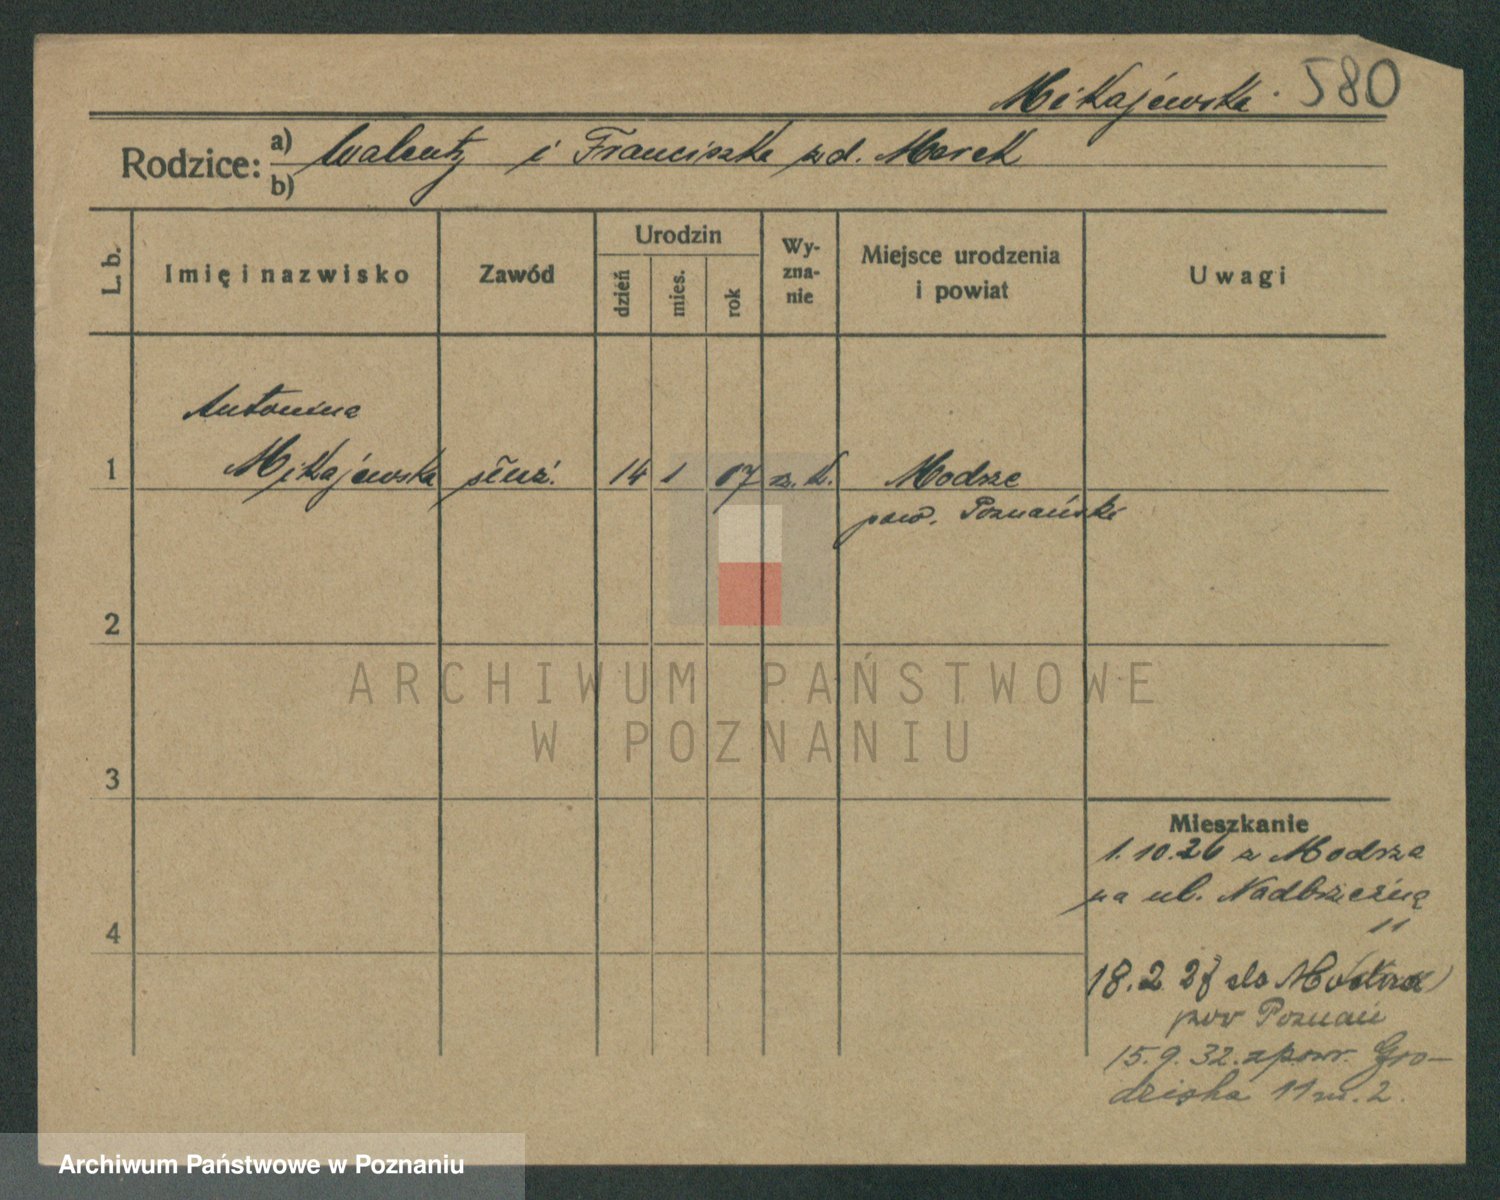 Mikajewska. 580
Rodzice: a) Walenty i Franciszka zd. Marek
b)
L. b.
Imię i nazwisko
Zawód
Urodzin
dzień
mies.
rok
Wy-
zna-
nie
Miejsce urodzenia
i powiat
Uwagi
Antonina
1 Mikajewska służ. 14 1 07 rz. k. Modrze
pow. Poznański
2
3
4
Mieszkanie
1.10.26 z Modrza
na ul. Nadbrzeżną
11
18.2 28 do Modrza
pow Poznań
15.9.32. zpowr. Gro-
dziska 11 m. 2.
ARCHIWUM PAŃSTWOWE
W POZNANIU
Archiwum Państwowe w Poznaniu